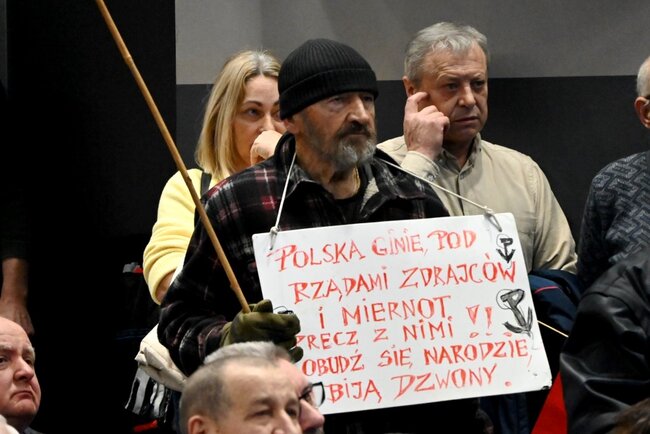 POLSKA GINIE, POD
RZĄDAMI ZDRAJCÓW
I MIERNOT.
PRECZ Z NIMI !!
OBUDŹ SIĘ NARODZIE,
BIJĄ DZWONY.